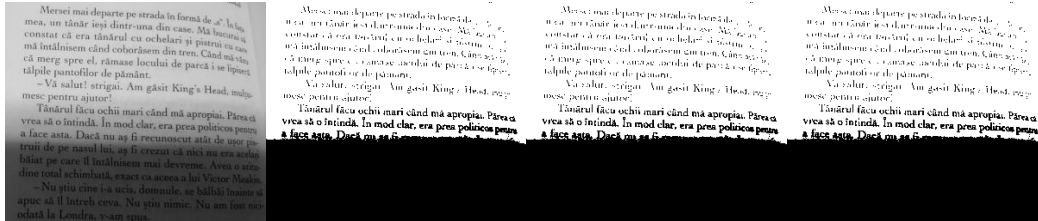 Mersei mai departe pe strada în formă de „a”. În fața
mea, un tânăr ieși dintr-una din case. Mă bucurai să
constat că era tânărul cu ochelari și pistrui cu care
mă întâlnisem când coborâsem din tren. Când mă văzu
că merg spre el, rămase locului de parcă i se lipiseră
tălpile pantofilor de pământ.
– Vă salut! strigai. Am găsit King's Head, mulțu-
mesc pentru ajutor!
Tânărul făcu ochii mari când mă apropiai. Părea că
vrea să o întindă. În mod clar, era prea politicos pentru
a face asta. Dacă nu aș fi recunoscut atât de ușor pis-
truii de pe nasul lui, aș fi crezut că nici nu era același
băiat pe care îl întâlnisem mai devreme. Avea o atitu-
dine total schimbată, exact ca aceea a lui Victor Meakin.
– Nu știu cine i-a ucis, domnule, se bâlbâi înainte să
apuc să îl întreb ceva. Nu știu nimic. Nu am fost nici-
odată la Londra, v-am spus.
Mersei mai departe pe strada în formă de
mea, un tânăr ieși dintr-una din case. Mă
constat că era tânărul cu ochelari și pistrui
mă întâlnisem când coborâsem din tren. Când
că merg spre el, rămase locului de parcă i se
tălpile pantofilor de pământ.
– Vă salut! strigai. Am găsit King's Head,
mesc pentru ajutor!
Tânărul făcu ochii mari când mă apropiai. Părea că
vrea să o întindă. În mod clar, era prea politicos pentru
a face asta. Dacă nu aș fi
Mersei mai departe pe strada în formă de
mea, un tânăr ieși dintr-una din case. Mă
constat că era tânărul cu ochelari și pistrui
mă întâlnisem când coborâsem din tren. Când
că merg spre el, rămase locului de parcă i se
tălpile pantofilor de pământ.
– Vă salut! strigai. Am găsit King's Head,
mesc pentru ajutor!
Tânărul făcu ochii mari când mă apropiai. Părea că
vrea să o întindă. În mod clar, era prea politicos pentru
a face asta. Dacă nu aș fi
Mersei mai departe pe strada în formă de
mea, un tânăr ieși dintr-una din case. Mă
constat că era tânărul cu ochelari și pistrui
mă întâlnisem când coborâsem din tren. Când
că merg spre el, rămase locului de parcă i se
tălpile pantofilor de pământ.
– Vă salut! strigai. Am găsit King's Head,
mesc pentru ajutor!
Tânărul făcu ochii mari când mă apropiai. Părea că
vrea să o întindă. În mod clar, era prea politicos pentru
a face asta. Dacă nu aș fi